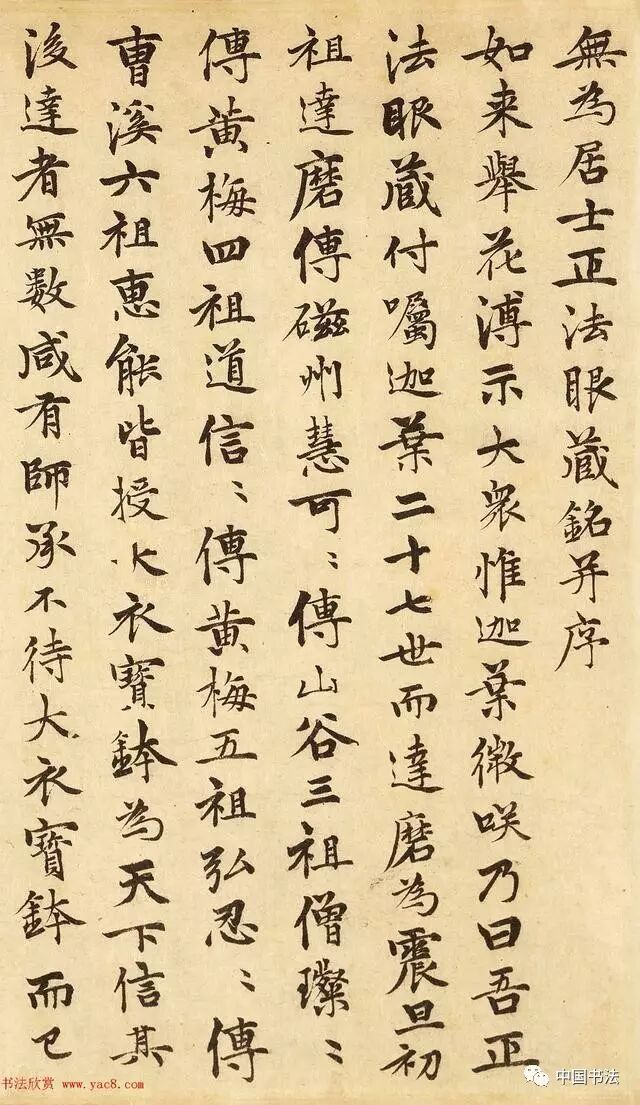 無為居士正法眼蔵銘并序
如来舉花溥示大衆惟迦葉微咲乃曰吾正
法眼蔵付囑迦葉二十七世而達磨為震旦初
祖達磨傳磁州慧可〻傳山谷三祖僧璨〻
傳黄梅四祖道信〻傳黄梅五祖弘忍〻傳
曹溪六祖恵能皆授大衣寶鉢為天下信其
後達者無数咸有師承不待大衣寶鉢而已
书法欣赏 www.yac8.com
中国书法